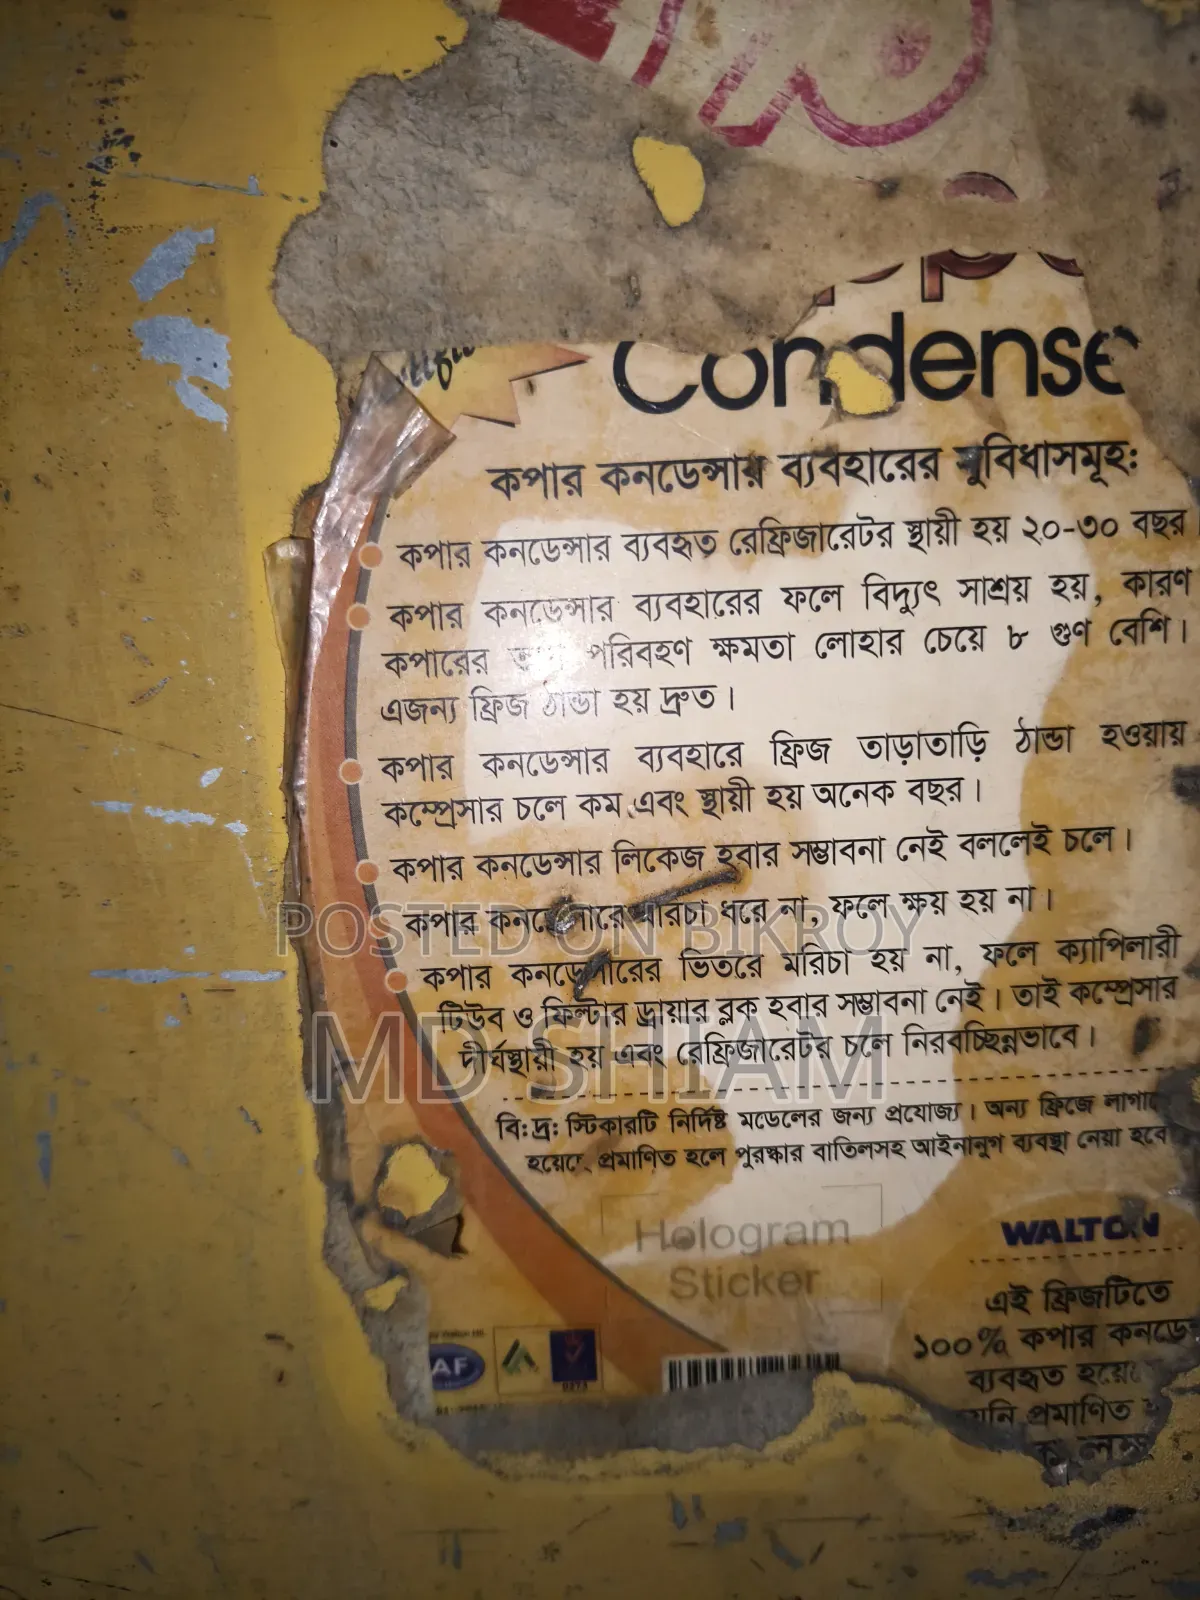 Condense
কপার কনডেন্সার ব্যবহারের সুবিধাসমূহঃ
কপার কনডেন্সার ব্যবহৃত রেফ্রিজারেটর স্থায়ী হয় ২০-৩০ বছর
কপার কনডেন্সার ব্যবহারের ফলে বিদ্যুৎ সাশ্রয় হয়, কারণ
কপারের তাপ পরিবহণ ক্ষমতা লোহার চেয়ে ৮ গুণ বেশি।
এজন্য ফ্রিজ ঠান্ডা হয় দ্রুত।
কপার কনডেন্সার ব্যবহারে ফ্রিজ তাড়াতাড়ি ঠান্ডা হওয়ায়
কম্প্রেসার চলে কম এবং স্থায়ী হয় অনেক বছর।
কপার কনডেন্সার লিকেজ হবার সম্ভাবনা নেই বললেই চলে।
কপার কনডেন্সারে মারচা ধরে না, ফলে ক্ষয় হয় না।
POSTED ON BIKROY
কপার কনডেন্সারের ভিতরে মরিচা হয় না, ফলে ক্যাপিলারী
টিউব ও ফিল্টার ড্রায়ার ব্লক হবার সম্ভাবনা নেই। তাই কম্প্রেসার
দীর্ঘস্থায়ী হয় এবং রেফ্রিজারেটর চলে নিরবচ্ছিন্নভাবে।
MD SHIAM
বি:দ্র: স্টিকারটি নির্দিষ্ট মডেলের জন্য প্রযোজ্য। অন্য ফ্রিজে
হয়েছে প্রমাণিত হলে পুরস্কার বাতিলসহ আইনানুগ ব্যবস্থা নেয়া হবে
Hologram
Sticker
WALTON
এই ফ্রিজটিতে
১০০% কপার কনডে
ব্যবহৃত হয়ে
প্রমাণিত
AF